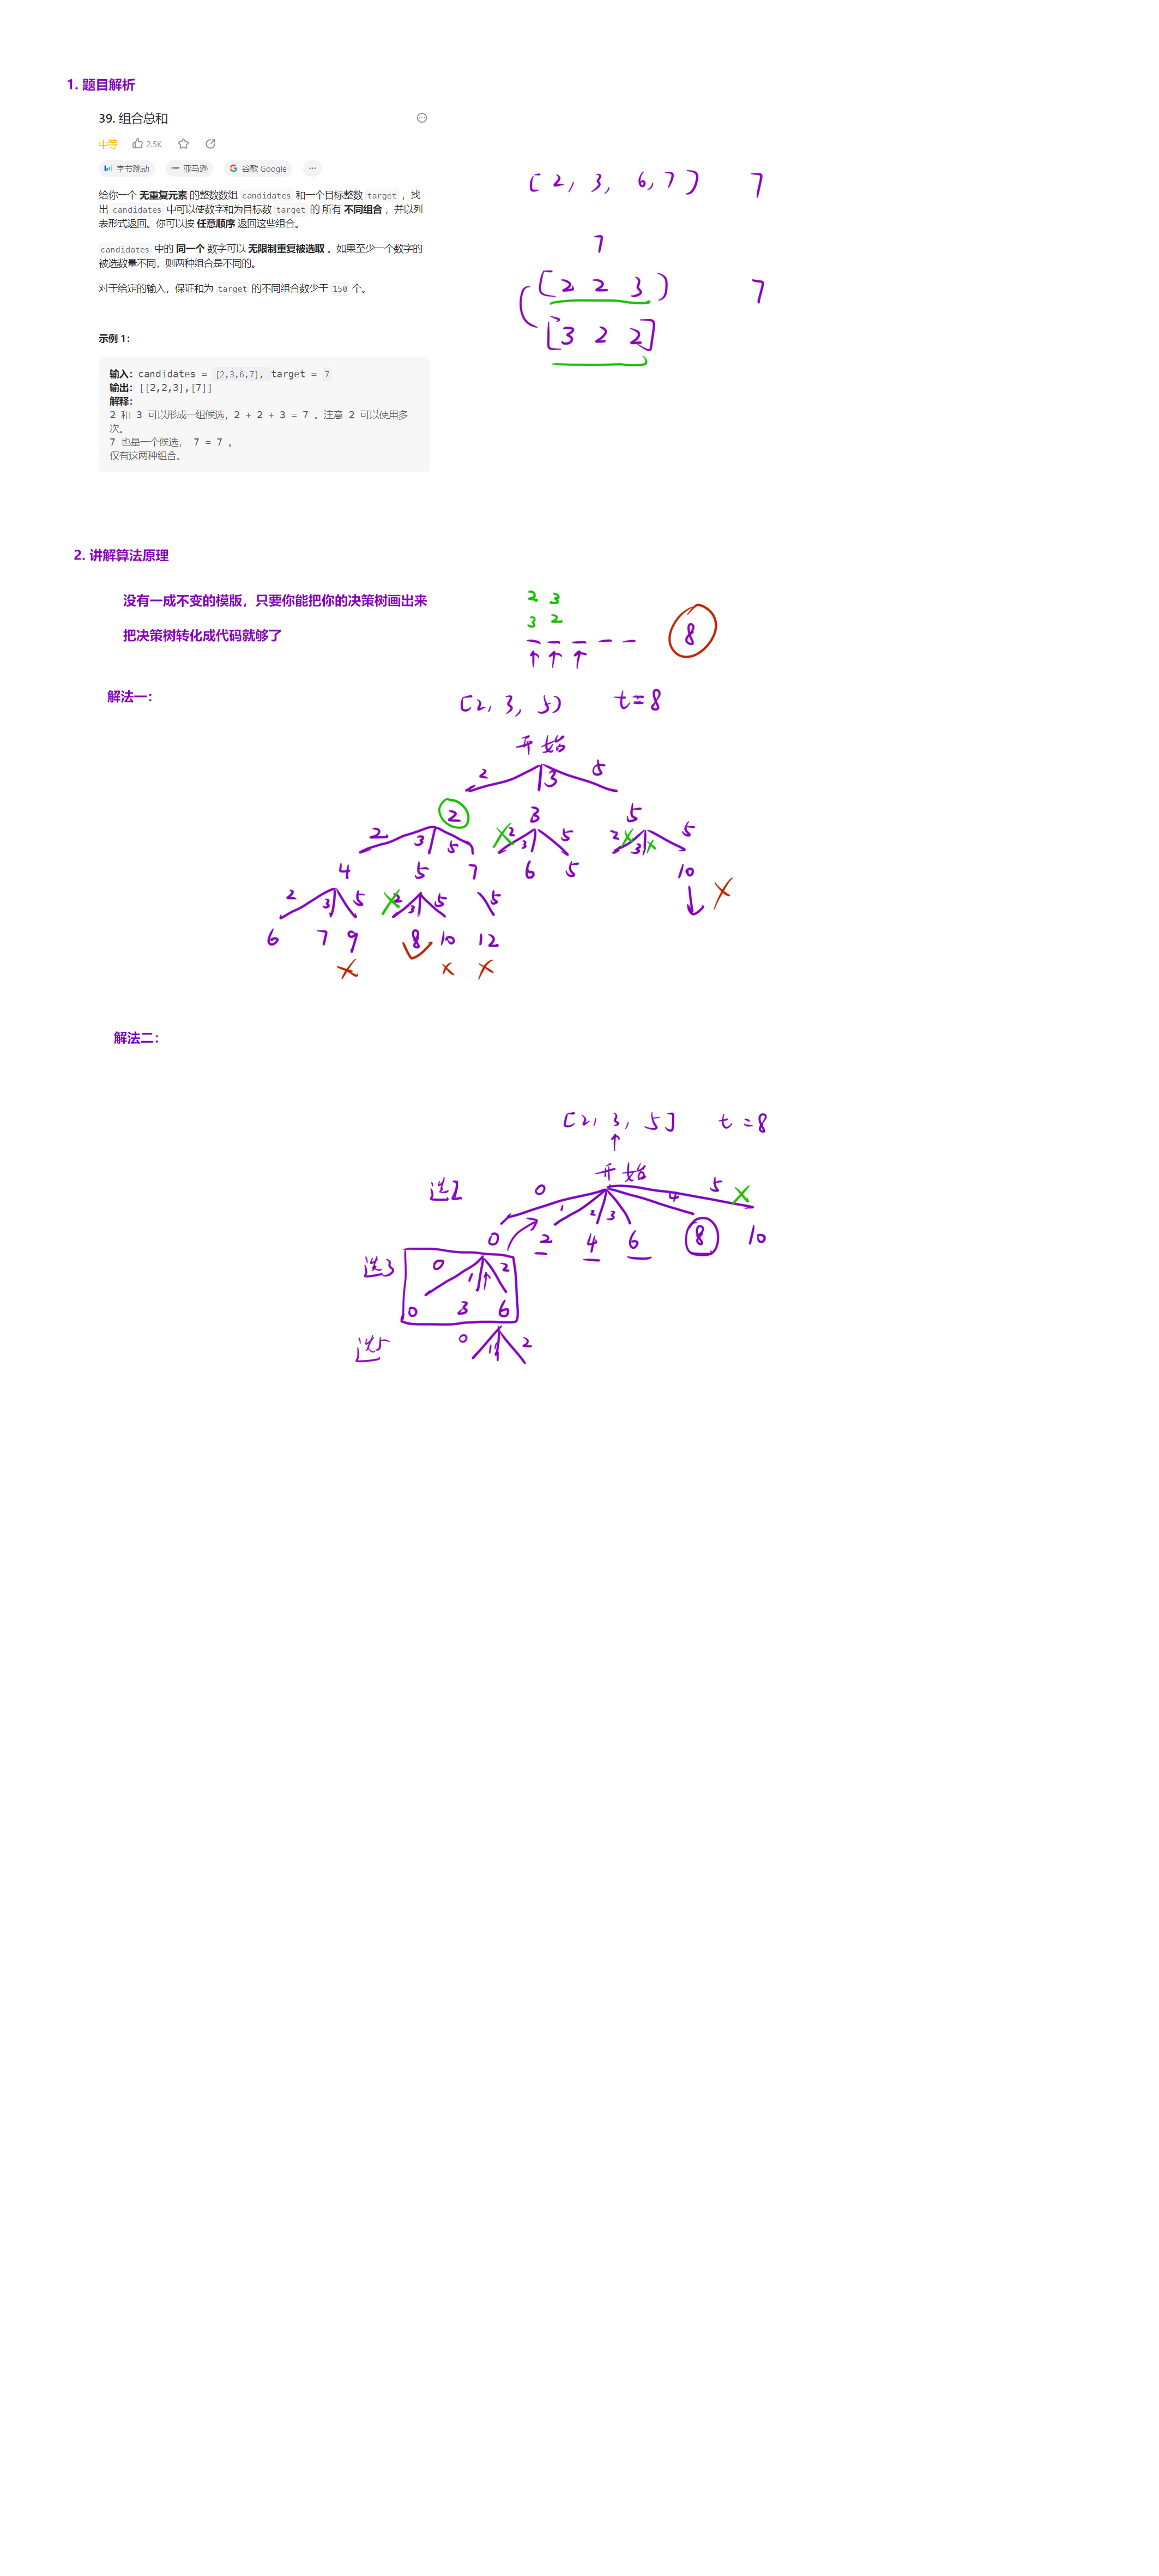 1. 题目解析
39. 组合总和
中等 2.5K
字节跳动 亚马逊 谷歌 Google ...
给你一个 无重复元素 的整数数组 candidates 和一个目标整数 target ，找
出 candidates 中可以使数字和为目标数 target 的 所有 不同组合 ，并以列
表形式返回。你可以按 任意顺序 返回这些组合。
candidates 中的 同一个 数字可以 无限制重复被选取 。如果至少一个数字的
被选数量不同，则两种组合是不同的。
对于给定的输入，保证和为 target 的不同组合数少于 150 个。
示例 1：
输入：candidates = [2,3,6,7], target = 7
输出：[[2,2,3],[7]]
解释：
2 和 3 可以形成一组候选，2 + 2 + 3 = 7 。注意 2 可以使用多
次。
7 也是一个候选， 7 = 7 。
仅有这两种组合。
[2, 3, 6, 7] 7
7
[2 2 3] 7
[3 2 2]
2. 讲解算法原理
没有一成不变的模版，只要你能把你的决策树画出来
把决策树转化成代码就够了
2 3
3 2
8
解法一：
[2, 3, 5] t=8
开始
2 3 5
2 3 5
2 3 5 2 3 5 2 3 5
4 5 7 6 5 10
2 3 5 2 3 5 5
6 7 9 8 10 12
解法二：
[2, 3, 5] t=8
开始
选2 0 1 2 3 4 5
0 2 4 6 8 10
选3 0 1 2
0 3 6
选5 0 1 2